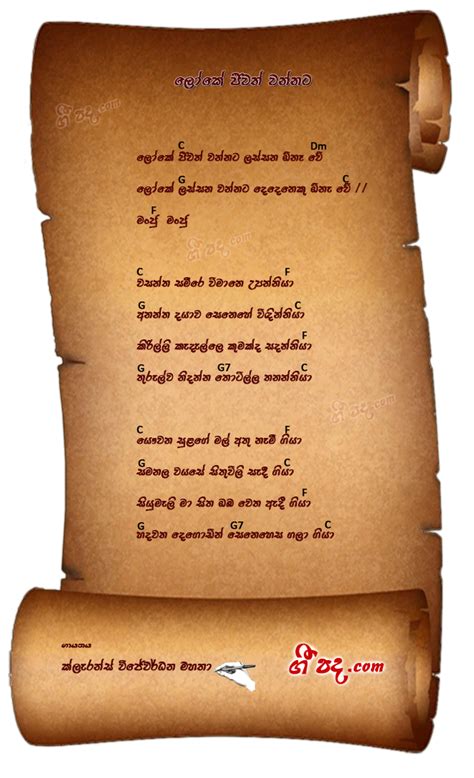 ලෝකේ ජීවත් වන්නට
ගී පද.com
C Dm
ලෝකේ ජීවත් වන්නට ලස්සන ඕනෑ වේ
G C
ලෝකේ ලස්සන වන්නට දෙදෙනෙකු ඕනෑ වේ //
F
මංජු මංජු
ගී පද.com
C F
වසන්ත සමීරෙ විමානෙ උපන්නියා
G C
අනන්ත දයාව සෙනෙහේ විඳින්නියා
F
කිරිල්ලි කැදැල්ලෙ කුමක්ද සදන්නියා
G G7 C
තුරුල්ව නිදන්න තොටිල්ල තනන්නියා
ගී පද.com
C F
යෞවන සුළගේ මල් අතු නැමී ගියා
G C
සමනල වයසේ සිතුවිලි සැදී ගියා
F
සියුමැලි මා සිත ඔබ වෙත ඇදී ගියා
G G7 C
හදවත දෙගොඩින් සෙනෙහෙස ගලා ගියා
ගායනය
ක්ලැරන්ස් විජේවර්ධන මහතා
ගී පද.com